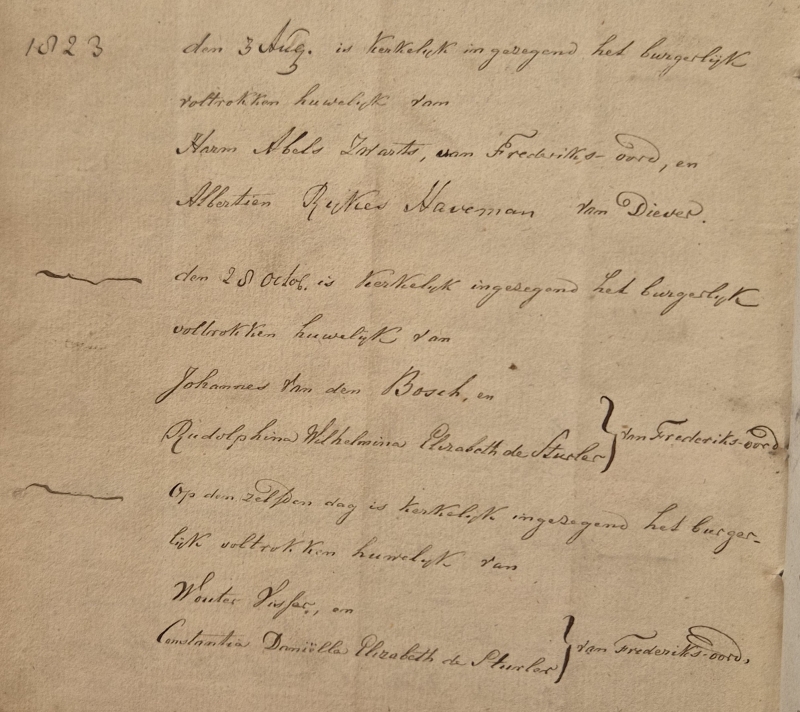 1823 den 3 Aug. is Kerkelyk ingezegend het burgerlijk
voltrokken huwelijk van
Harm Abels Zwarts, van Frederiks-oord, en
Albertien Rijkes Haveman van Diever.
den 28 Octob. is Kerkelyk ingezegend het burgerlyk
voltrokken huwelyk van
Johannes van den Bosch, en
Rudolphina Wilhelmina Elizabeth de Sturler } van Frederiks-oord
Op den zelfden dag is Kerkelyk ingezegend het burger-
lyk voltrokken huwelyk van
Wouter Visser, en
Constantia Daniëlla Elizabeth de Sturler } van Frederiks-oord,